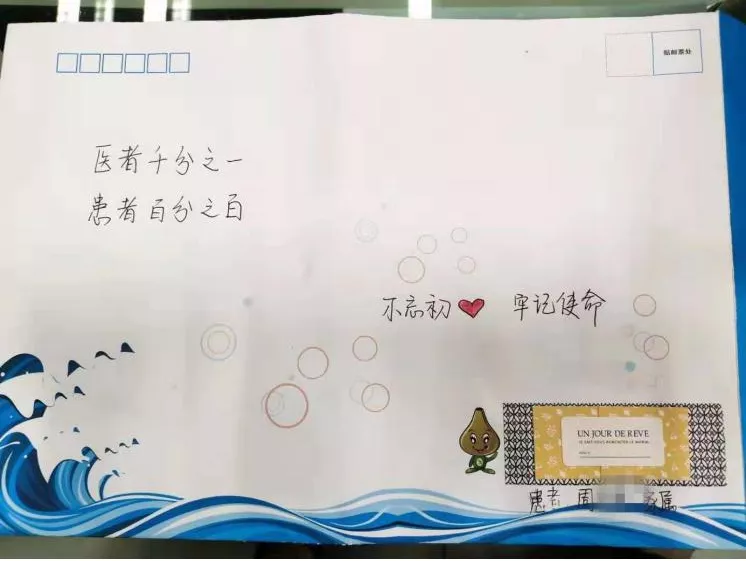 贴邮票处
医者千分之一
患者百分之百
不忘初 牢记使命
UN JOUR DE REVE
患者 周 家属